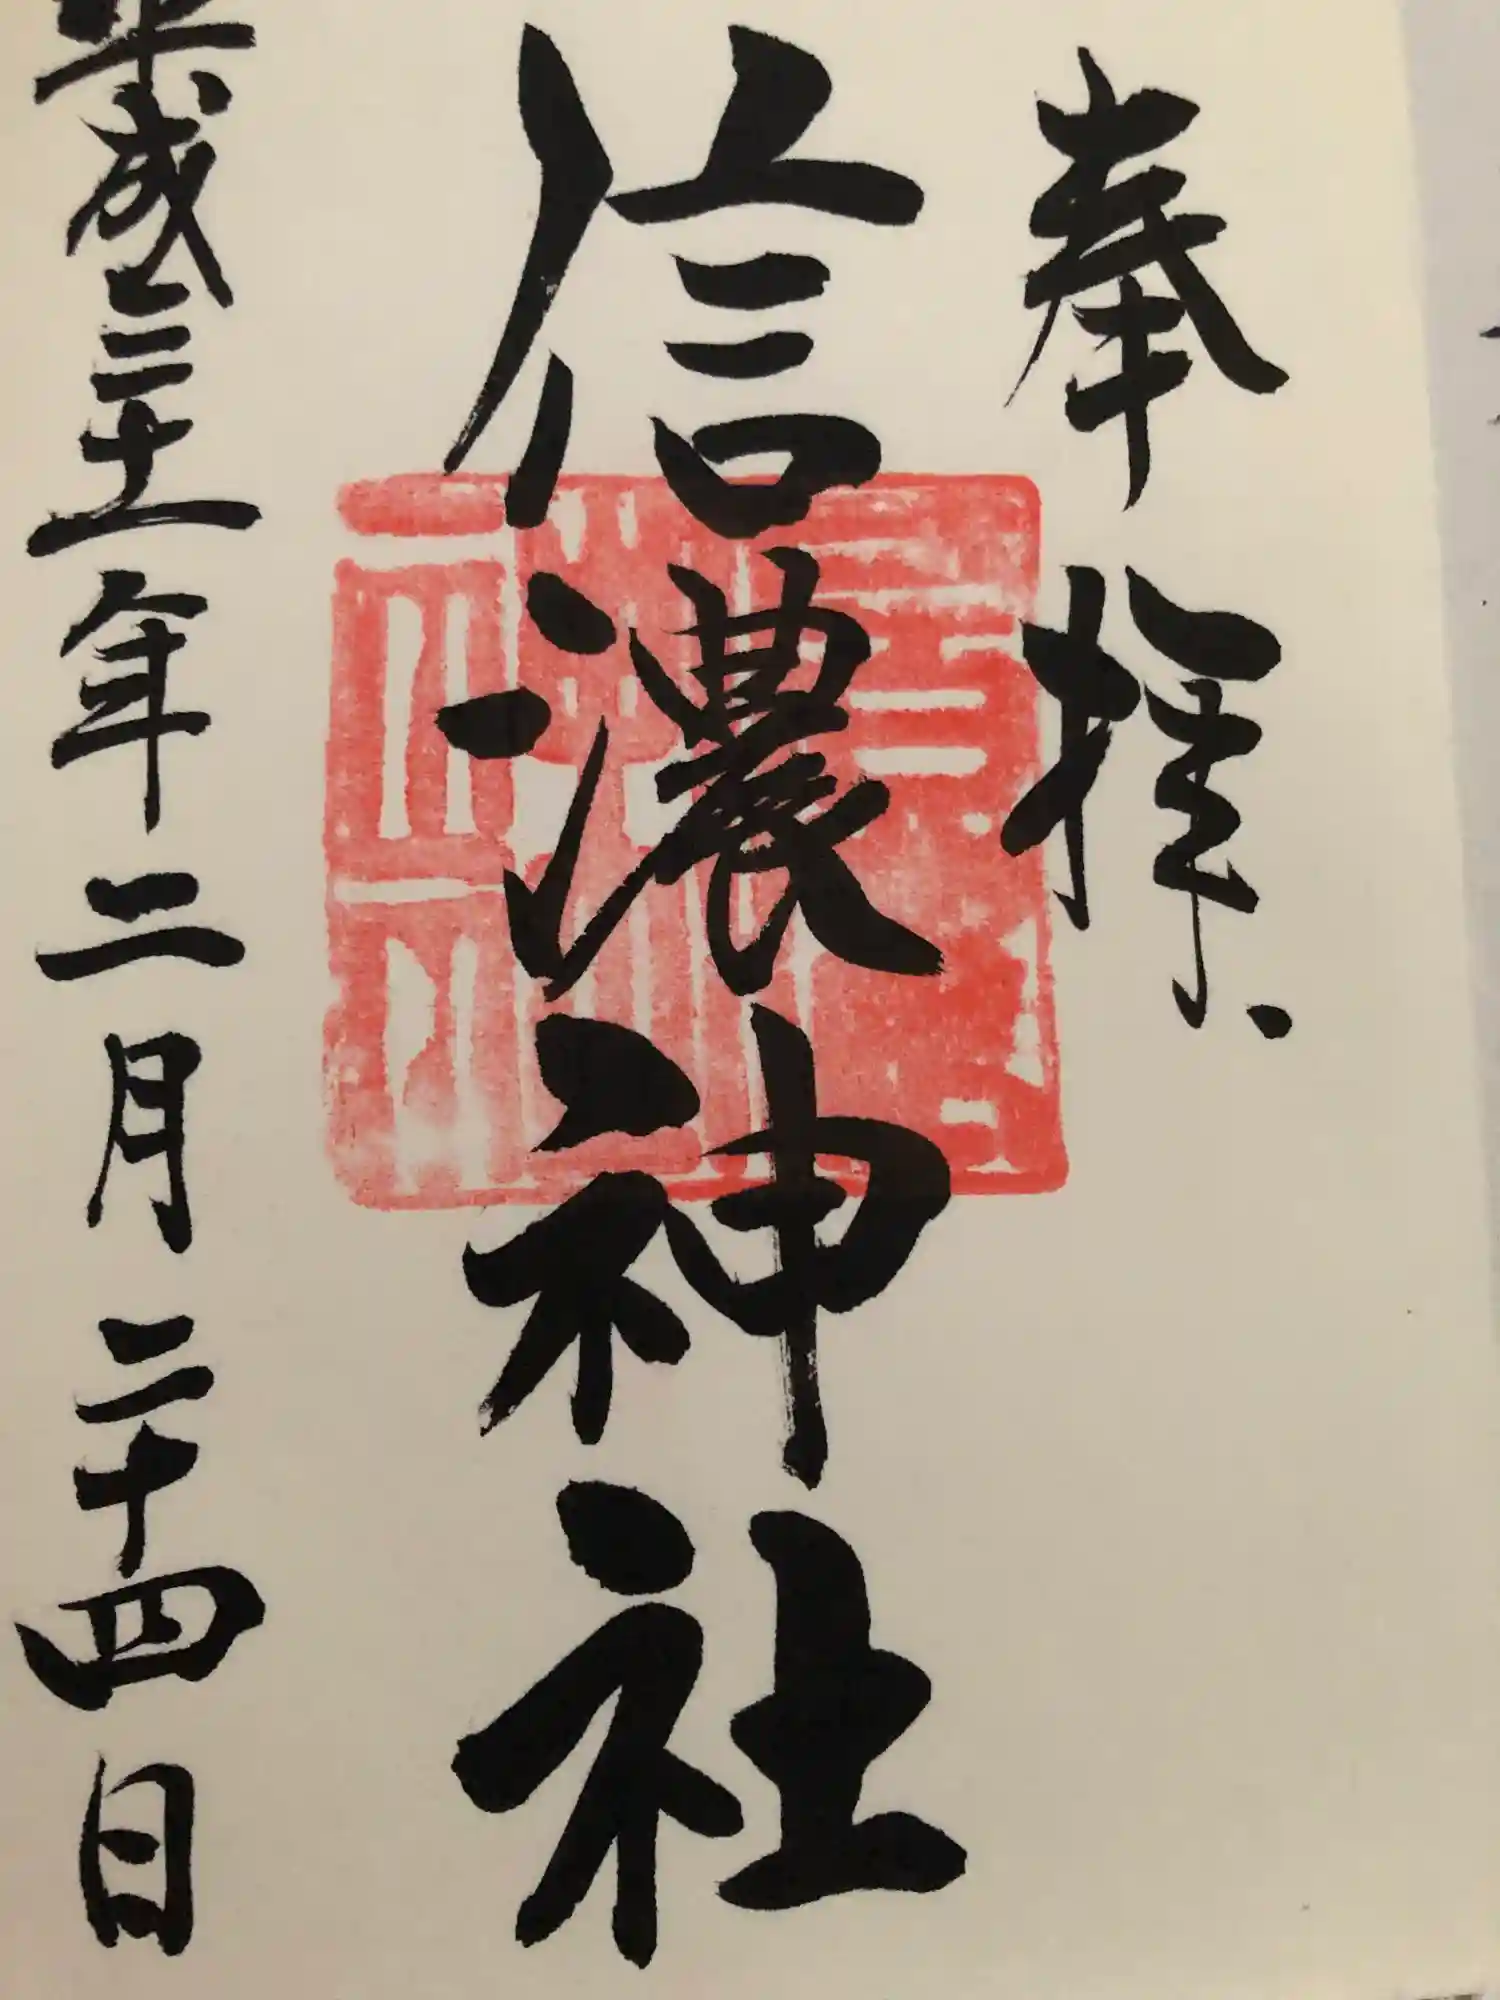 奉拝、
信濃神社
平成三十一年二月二十四日